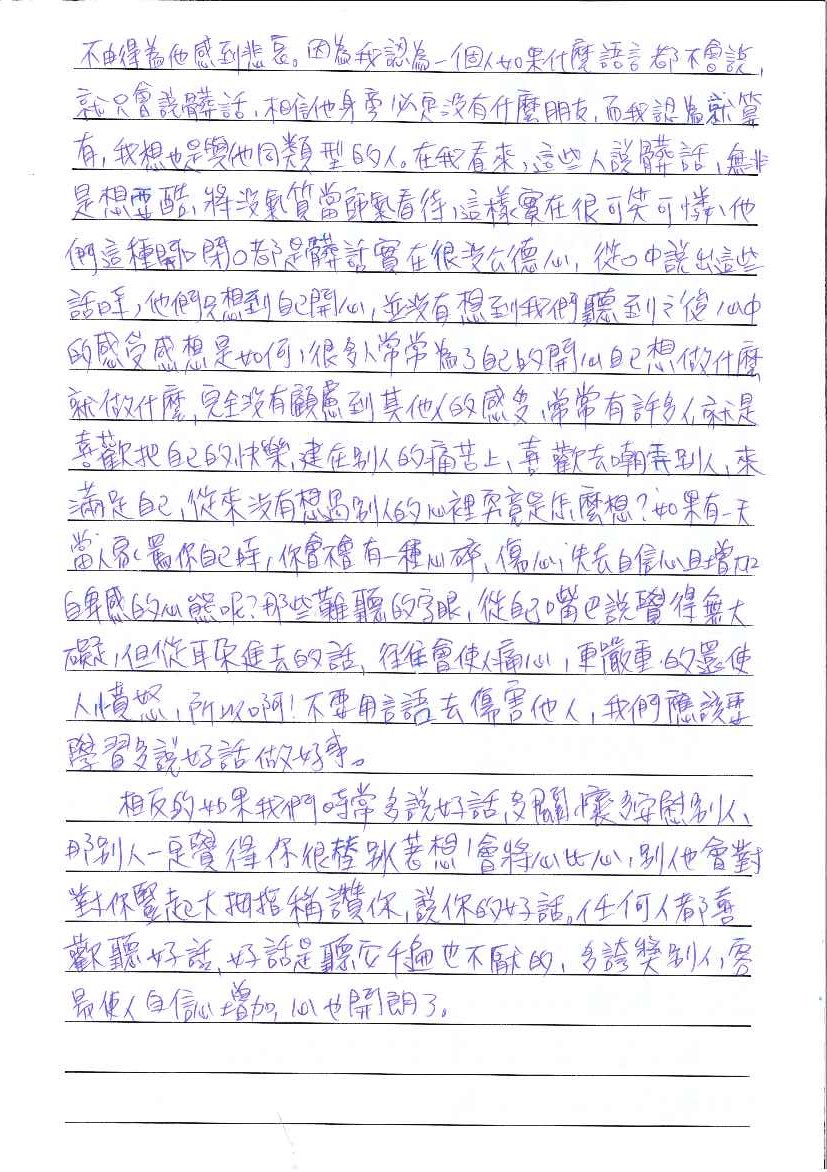 不由得為他感到悲哀。因為我認為一個人如果什麼語言都不會說,
就只會說髒話,相信他身旁必定沒有什麼朋友,而我認為就算
有,我想也是與他同類型的人。在我看來,這些人說髒話,無非
是想耍酷,將沒氣質當帥氣看待,這樣實在很可笑可憐,他
們這種開口閉口都是髒話實在很沒公德心,從口中說出這些
話時,他們只想到自己開心,並沒有想到我們聽到之後心中
的感受感想是如何,很多人常常為了自己的開心自己想做什麼
就做什麼,完全沒有顧慮到其他人的感受,常常有許多人就是
喜歡把自己的快樂,建在別人的痛苦上,喜歡去嘲弄別人,來
滿足自己,從來沒有想過別人的心裡究竟是怎麼想?如果有一天
當人家罵你自己時,你會不會有一種心碎,傷心,失去自信心且增加
自卑感的心態呢?那些難聽的字眼,從自己嘴巴說覺得無大
礙,但從耳朵進去的話,往往會使人痛心,更嚴重的還使
人憤怒,所以啊!不要用言語去傷害他人,我們應該要
學習多說好話做好事。
相反的如果我們時常多說好話,多關懷多安慰別人,
那別人一定覺得你很替別著想,會將心比心,別他會對
對你豎起大拇指稱讚你,說你的好話。任何人都喜
歡聽好話,好話是聽安千遍也不厭的,多誇獎別人,容
易使人自信心增加,心也開朗了。